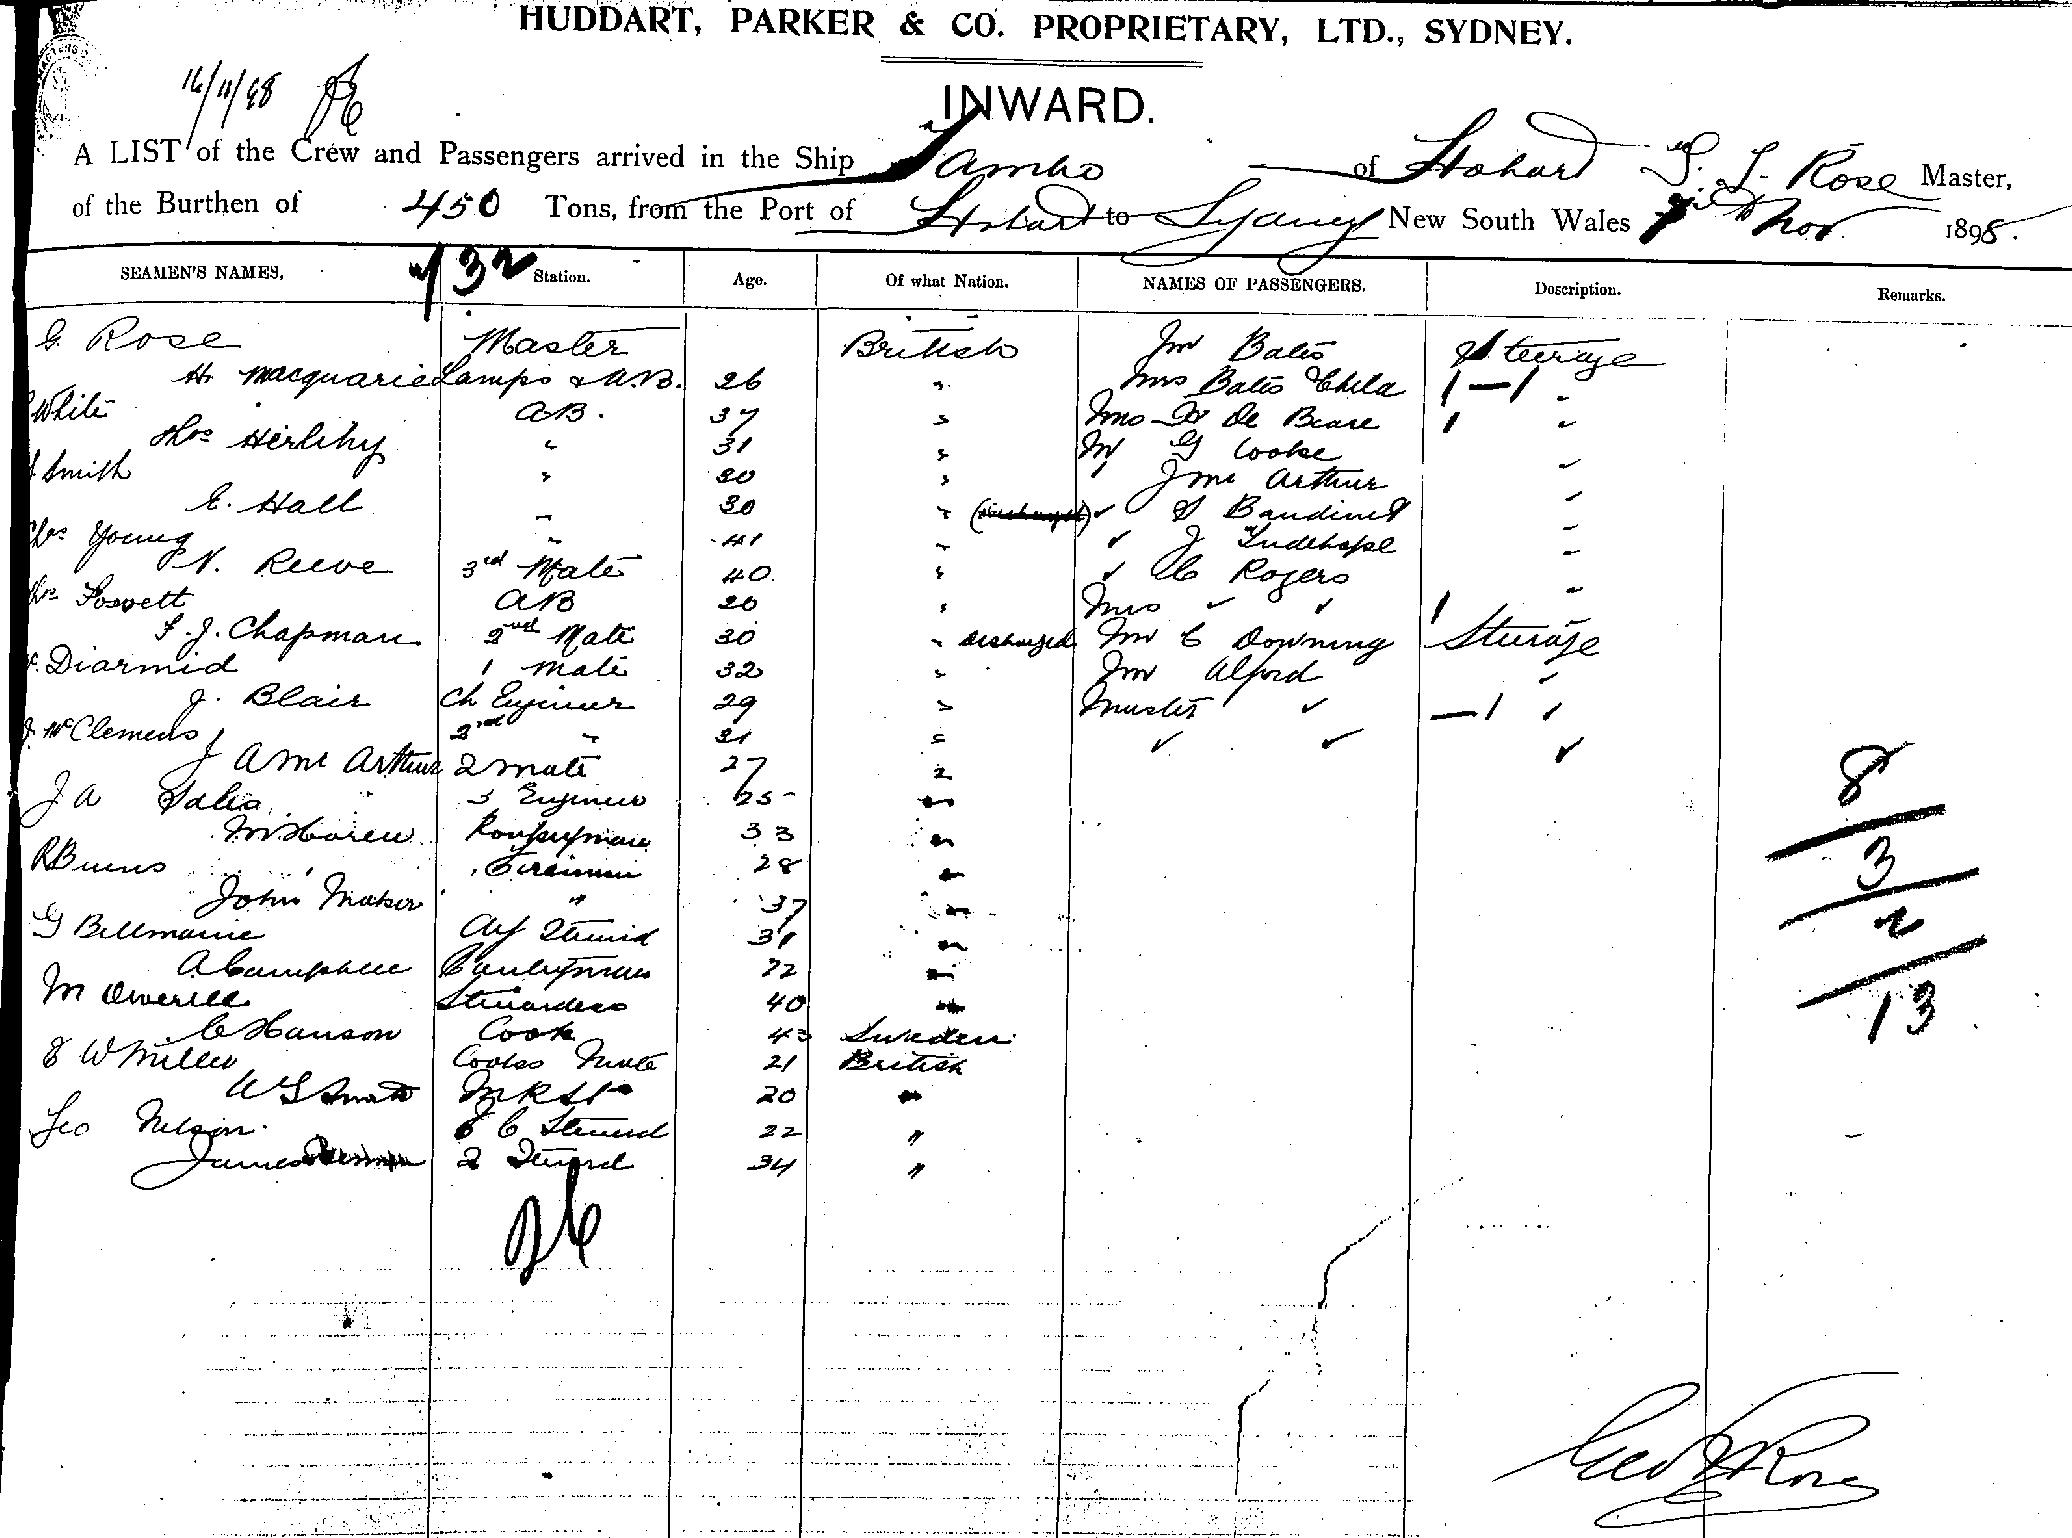 HUDDART, PARKER & CO. PROPRIETARY, LTD., SYDNEY.
16/11/98
INWARD.
A LIST of the Crew and Passengers arrived in the Ship Tambo of Hobart Rose Master,
of the Burthen of 450 Tons, from the Port of Hobart to Sydney New South Wales Nov 1898.
SEAMEN'S NAMES. 32 Station. Age. Of what Nation. NAMES OF PASSENGERS. Description. Remarks.
G Rose Master British Mr Bates Steerage
H Macquarie Lamps & A.B. 26 " Mrs Bates Child 1 — 1 "
White AB. 37 " Mrs De Beare 1 "
Thos Herlihy " 31 " Mr G Cooke "
Smith " 20 " J Mc Arthur "
E. Hall " 30 " (discharged) " S Baudinet "
Chs Young " 41 " " J "
N. Reeve 3rd Mate 40 " " C Rogers "
AB 20 " Mrs " " 1
J. Chapman 2nd Mate 30 " discharged Mr C Downing Steerage
Diarmid 1 Mate 32 " Mr Alford "
J. Blair Ch Engineer 29 " Master " — 1 "
McClemens 2nd " 21 " " " "
J A Mc Arthur 2 mate 27 "
J A 3 Engineer 25 "
33 "
R Burns Fireman 28 "
John " 37 "
G Bellmaine Steward 31 "
A Campbell Pantryman 22 "
M Stewardess 40 "
C Hanson Cook 43 Sweden
W Miller Cooks Mate 21 British
W 20 "
Geo Nelson. Steward 22 "
James 2 Steward 34 "
8
3
2
13
26
Geo Rose